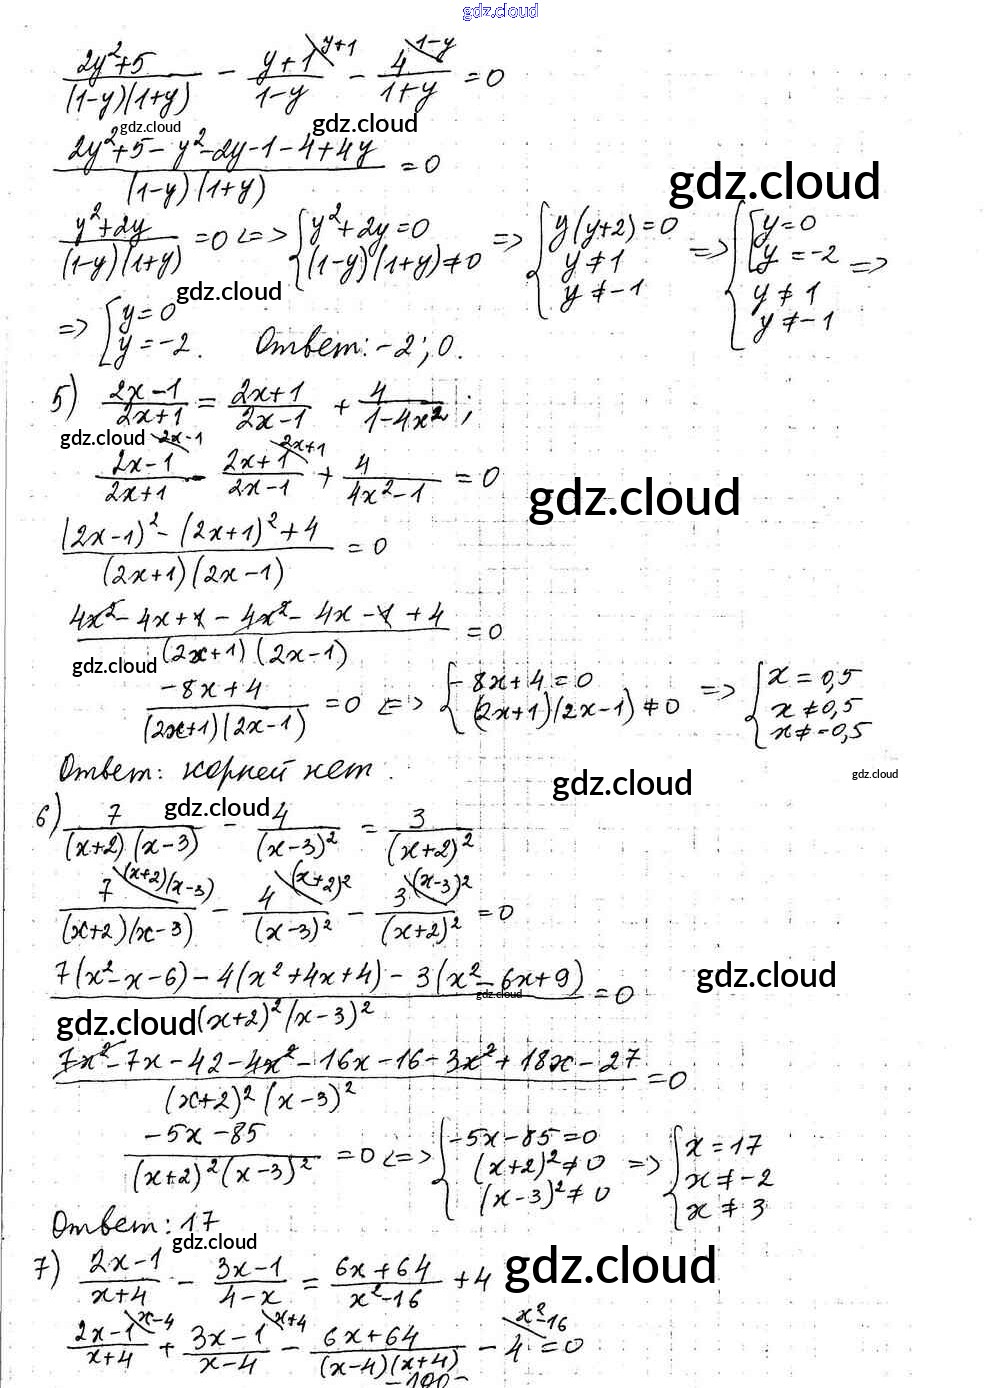 gdz.cloud
(2y²+5)/((1-y)(1+y)) - (y+1)/(1-y) ^(y+1) - 4/(1+y) ^(1-y) = 0
gdz.cloud gdz.cloud
(2y²+5-y²-2y-1-4+4y)/((1-y)(1+y)) = 0
gdz.cloud
(y²+2y)/((1-y)(1+y)) = 0 <=> { y²+2y=0 ; (1-y)(1+y)≠0 => { y(y+2)=0 ; y≠1 ; y≠-1 => { [ y=0 ; y=-2 ; y≠1 ; y≠-1 =>
gdz.cloud
=> [ y=0 ; y=-2. Ответ: -2; 0.
5) (2x-1)/(2x+1) = (2x+1)/(2x-1) + 4/(1-4x²);
gdz.cloud
(2x-1)/(2x+1) ^(2x-1) - (2x+1)/(2x-1) ^(2x+1) + 4/(4x²-1) = 0
gdz.cloud
((2x-1)²-(2x+1)²+4)/((2x+1)(2x-1)) = 0
(4x²-4x+1-4x²-4x-1+4)/((2x+1)(2x-1)) = 0
gdz.cloud
(-8x+4)/((2x+1)(2x-1)) = 0 <=> { -8x+4=0 ; (2x+1)(2x-1)≠0 => { x=0,5 ; x≠0,5 ; x≠-0,5
Ответ: корней нет.
gdz.cloud gdz.cloud
gdz.cloud
6) 7/((x+2)(x-3)) - 4/(x-3)² = 3/(x+2)²
7/((x+2)(x-3)) ^((x+2)(x-3)) - 4/(x-3)² ^((x+2)²) - 3/(x+2)² ^((x-3)²) = 0
(7(x²-x-6)-4(x²+4x+4)-3(x²-6x+9))/((x+2)²(x-3)²) = 0
gdz.cloud gdz.cloud
gdz.cloud
(7x²-7x-42-4x²-16x-16-3x²+18x-27)/((x+2)²(x-3)²) = 0
(-5x-85)/((x+2)²(x-3)²) = 0 <=> { -5x-85=0 ; (x+2)²≠0 ; (x-3)²≠0 => { x=17 ; x≠-2 ; x≠3
Ответ: 17
gdz.cloud
7) (2x-1)/(x+4) - (3x-1)/(4-x) = (6x+64)/(x²-16) + 4
gdz.cloud
(2x-1)/(x+4) ^(x-4) + (3x-1)/(x-4) ^(x+4) - (6x+64)/((x-4)(x+4)) - 4 ^(x²-16) = 0
-100-